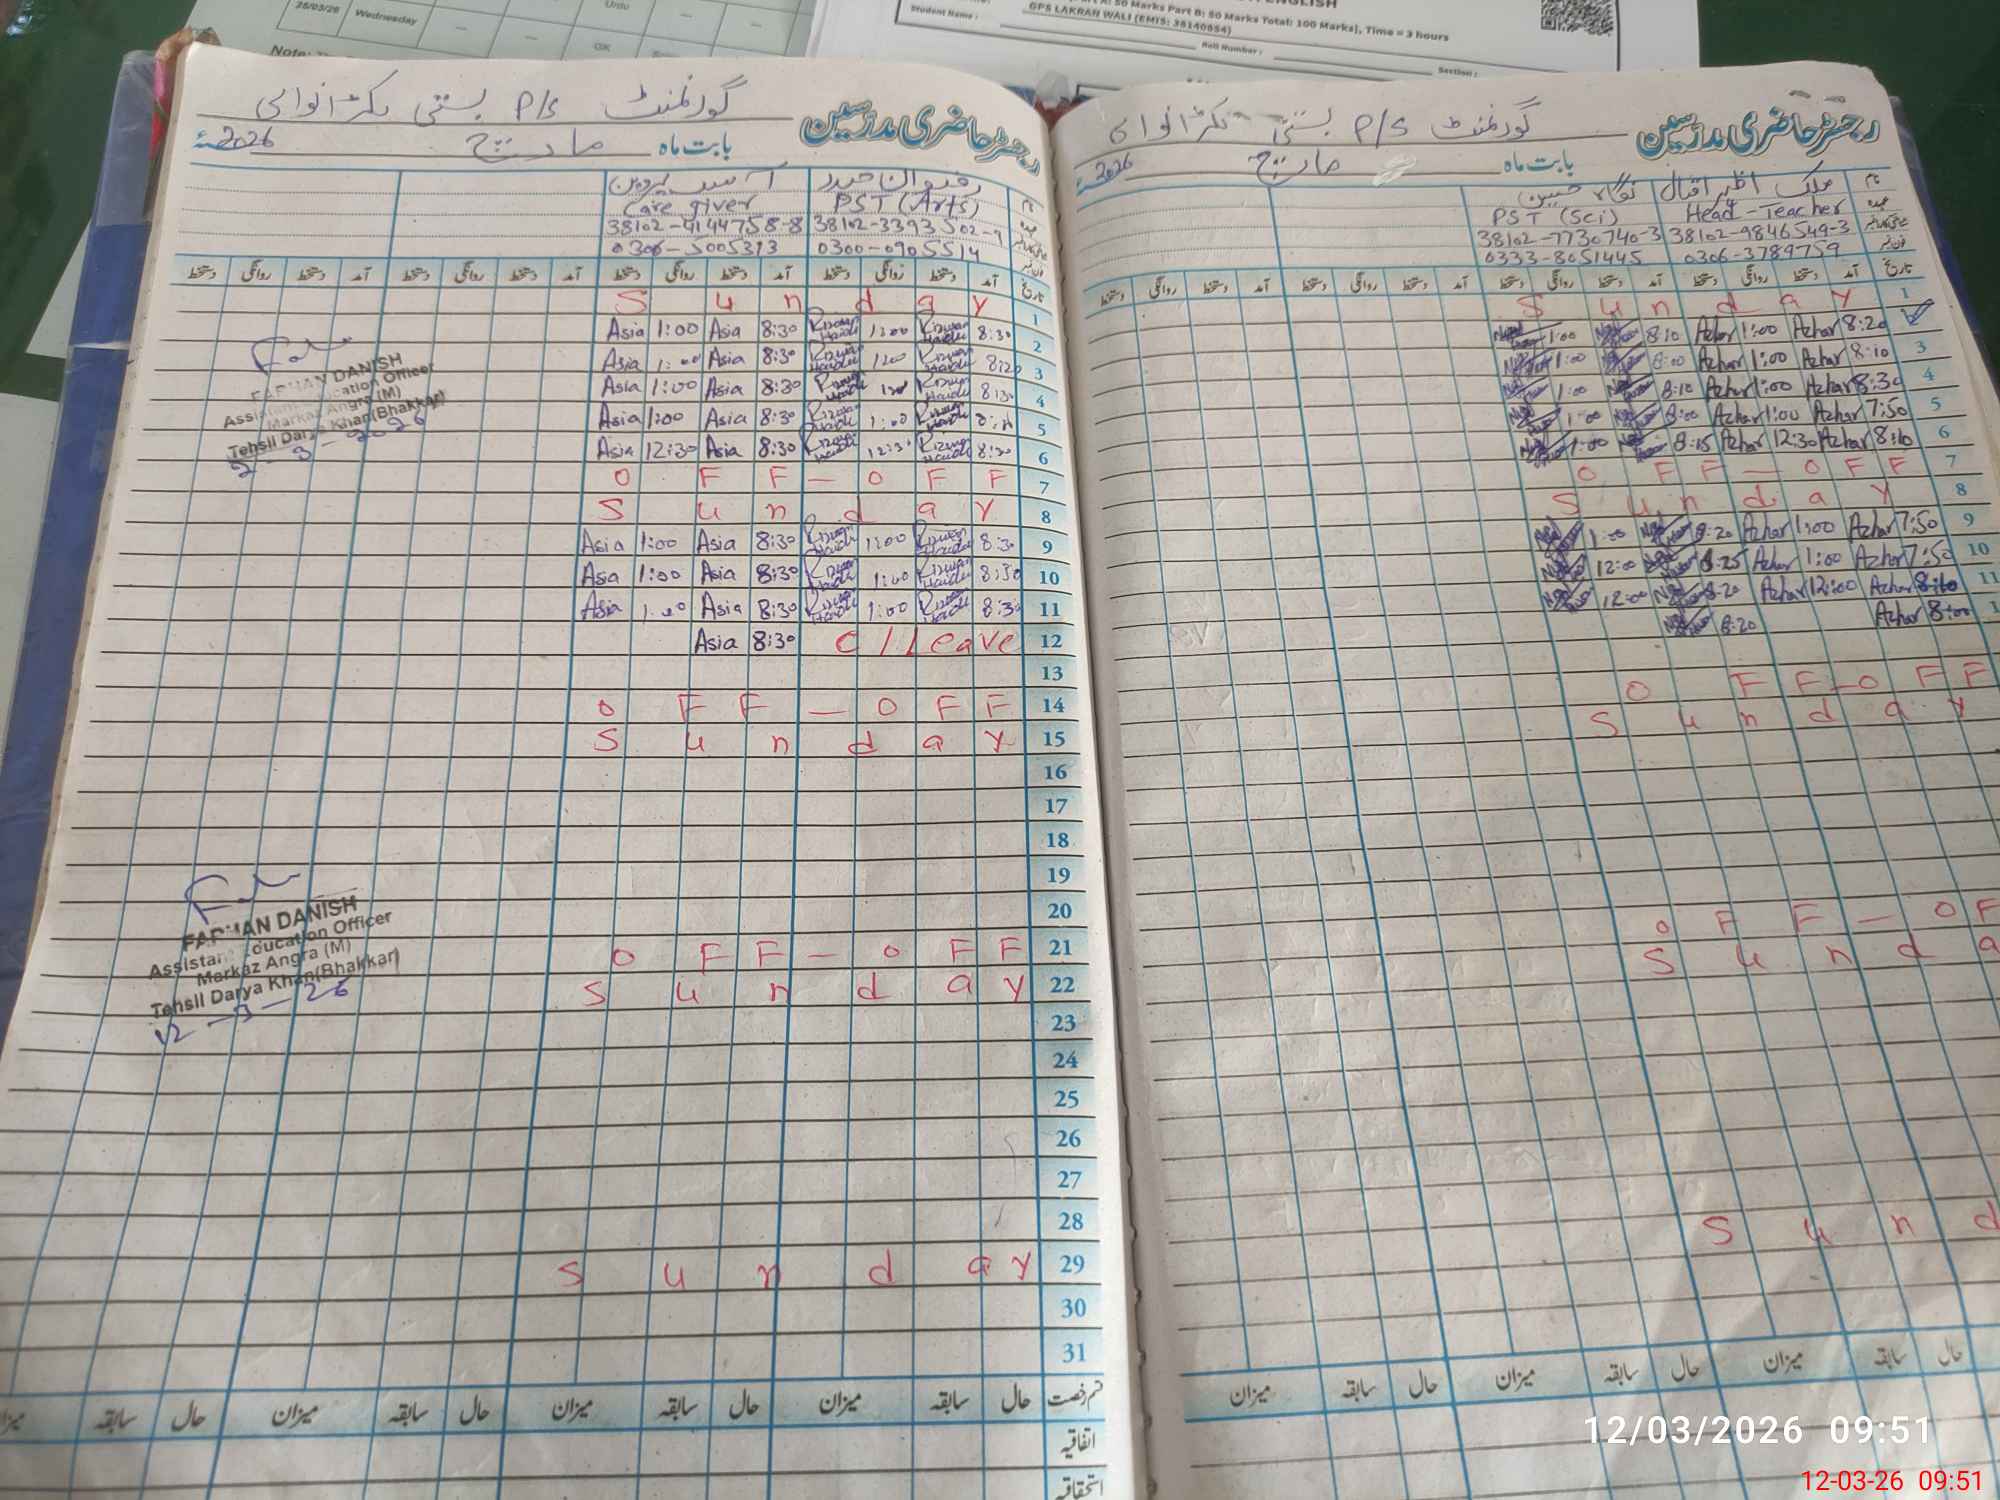 26/03/26 Wednesday — — Urdu — —
OK
Note:
ENGLISH
Part B: 50 Marks Total: 100 Marks), Time = 3 hours
GPS LAKRAN WALI (EMIS: 38140654)
Student Name :
Roll Number :
Section :
رجسٹر حاضری مدرسین گورنمنٹ P/S بستی لکڑانوالی
بابت ماہ مارچ 2026ء
نام رضوان حیدر آسیہ پروین
عہدہ PST (Arts) Care giver
38102-3393502-9 38102-4144758-8
0300-0905514 0306-5005313
تاریخ آمد دستخط روانگی دستخط آمد دستخط روانگی دستخط آمد دستخط روانگی دستخط آمد دستخط روانگی دستخط
1 Sunday
2 8:30 Rizwan Haider 1:00 Rizwan Haider 8:30 Asia 1:00 Asia
3 8:20 Rizwan Haider 1:00 Rizwan Haider 8:30 Asia 1:00 Asia
4 8:30 Rizwan Haider 1:00 Rizwan Haider 8:30 Asia 1:00 Asia
5 Rizwan Haider 1:00 Rizwan Haider 8:30 Asia 1:00 Asia
6 8:30 Rizwan Haider 12:30 Rizwan Haider 8:30 Asia 12:30 Asia
7 OFF — OFF
8 Sunday
9 8:30 Rizwan Haider 1:00 Rizwan Haider 8:30 Asia 1:00 Asia
10 8:30 Rizwan Haider 1:00 Rizwan Haider 8:30 Asia 1:00 Asia
11 8:30 Rizwan Haider 1:00 Rizwan Haider 8:30 Asia 1:00 Asia
12 C/Leave 8:30 Asia
13
14 OFF — OFF
15 Sunday
16
17
18
19
20
21 OFF — OFF
22 Sunday
23
24
25
26
27
28
29 Sunday
30
31
قسم رخصت حال سابقہ میزان حال سابقہ میزان حال سابقہ میزان حال سابقہ
اتفاقیہ
استحقاقیہ
FARHAN DANISH
Assistant Education Officer
Markaz Angra (M)
Tehsil Darya Khan(Bhakkar)
2-3-2026
FARHAN DANISH
Assistant Education Officer
Markaz Angra (M)
Tehsil Darya Khan(Bhakkar)
12-3-26
رجسٹر حاضری مدرسین گورنمنٹ P/S بستی لکڑانوالی
بابت ماہ مارچ 2026ء
نام ملک اظہر اقبال حسین
عہدہ Head-Teacher PST (Sci)
38102-9846549-3 38102-7730740-3
0306-3789759 0333-8051445
تاریخ آمد دستخط روانگی دستخط آمد دستخط روانگی دستخط آمد دستخط روانگی دستخط آمد دستخط روانگی دستخط
1 Sunday
8:20 Azhar 1:00 Azhar 8:10 1:00
3 8:10 Azhar 1:00 Azhar 8:00 1:00
4 8:30 Azhar 1:00 Azhar 8:10 1:00
5 7:50 Azhar 1:00 Azhar 8:00 1:00
6 8:10 Azhar 12:30 Azhar 8:15 1:00
7 OFF — OFF
8 Sunday
9 7:50 Azhar 1:00 Azhar 8:20 1:00
10 7:50 Azhar 1:00 Azhar 8:25 12:00
11 8:10 Azhar 12:00 Azhar 8:20 12:00
8:00 Azhar 8:20
OFF — OFF
Sunday
OFF — OF
Sunda
Sund
حال سابقہ میزان حال سابقہ میزان حال سابقہ میزان
12/03/2026 09:51
12-03-26 09:51